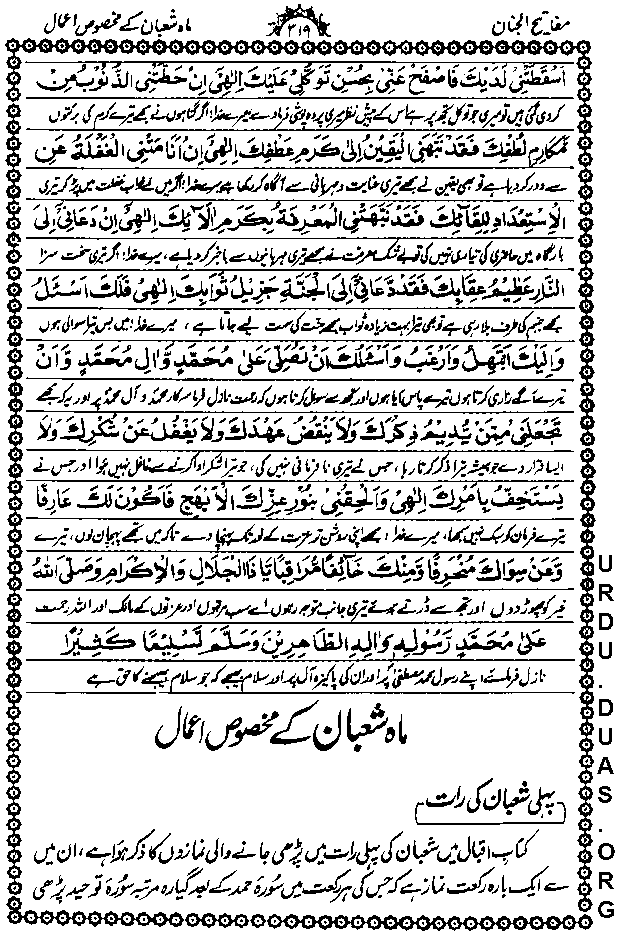 مفاتیح الجنان
۳۱۹
ماہ شعبان کے مخصوص اعمال
اَسْقَطَتْنِیْ لَدَیْكَ فَاصْفَحْ عَنِّیْ بِحُسْنِ تَوَكُّلِیْ عَلَیْكَ اِلٰهِیْ اِنْ حَطَّتْنِی الذُّنُوْبُ مِنْ
کر دی گئی ہیں تو میری جو توکل تجھ پر ہے اس کے پیش نظر میری پردہ پوشی فرما دے میرے خدا اگر گناہوں نے مجھے تیرے کرم کی برکتوں
مَّكَارِمِ لُطْفِكَ فَقَدْ نَبَّهَنِی الْیَقِیْنُ اِلٰی كَرَمِ عَطْفِكَ اِلٰهِیْ اِنْ اَنَامَتْنِی الْغَفْلَةُ عَنِ
سے دور کر دیا ہے تو بھی یقین نے مجھے تیری عنایت و مہربانی سے آگاہ کر رکھا ہے میرے خدا اگر میں نے خواب غفلت میں پڑ کر تیری
الْاِسْتِعْدَادِ لِلِقَآئِكَ فَقَدْ نَبَّهَتْنِی الْمَعْرِفَةُ بِكَرَمِ اٰلَآئِكَ اِلٰهِیْ اِنْ دَعَانِیْ اِلَی
بارگاہ میں حاضری کی تیاری نہیں کی تو بے شک معرفت نے مجھے تیری مہربانیوں سے باخبر کر دیا ہے، میرے خدا! اگر تیری سخت سزا
النَّارِ عَظِیْمُ عِقَابِكَ فَقَدْ دَعَانِیْ اِلَی الْجَنَّةِ جَزِیْلُ ثَوَابِكَ اِلٰهِیْ فَلَكَ اَسْئَلُ
مجھے جہنم کی طرف بلا رہی ہے تو بھی تیرا بہت زیادہ ثواب مجھے جنت کی سمت لیے جاتا ہے، میرے خدا! میں بس تیرا سوالی ہوں
وَاِلَیْكَ اَبْتَهِلُ وَاَرْغَبُ وَاَسْئَلُكَ اَنْ تُصَلِّیَ عَلٰی مُحَمَّدٍ وَّاٰلِ مُحَمَّدٍ وَّاَنْ
تیرے آگے زاری کرتا ہوں تیرے پاس آیا ہوں اور تجھ سے سوال کرتا ہوں کہ رحمت نازل فرما سرکار محمدؐ و آل محمدؐ پر اور یہ کہ مجھے
تَجْعَلَنِیْ مِمَّنْ یُّدِیْمُ ذِكْرَكَ وَلَا یَنْقُضُ عَهْدَكَ وَلَا یَغْفُلُ عَنْ شُكْرِكَ وَلَا
ایسا قرار دے جو ہمیشہ تیرا ذکر کرتا رہا، جس نے تیری نافرمانی نہیں کی، جو تیرا شکر ادا کرنے سے غافل نہیں ہوا اور جس نے
یَسْتَخِفُّ بِاَمْرِكَ اِلٰهِیْ وَاَلْحِقْنِیْ بِنُوْرِ عِزِّكَ الْاَبْهَجِ فَاَكُوْنَ لَكَ عَارِفًا
تیرے فرمان کو سبک نہیں سمجھا، میرے خدا! مجھے اپنی روشن تر عزت کے نور تک پہنچا دے تاکہ میں تجھے پہچان لوں، تیرے
وَّعَنْ سِوَاكَ مُنْحَرِفًا وَّمِنْكَ خَآئِفًا مُّرَاقِبًا یَّا ذَا الْجَلَالِ وَالْاِكْرَامِ وَصَلَّی اللهُ
غیر کو چھوڑ دوں اور تجھ سے ڈرتے ہوئے تیری جانب متوجہ رہوں اے سب مرتبوں اور عزتوں کے مالک اور اللہ رحمت
عَلٰی مُحَمَّدٍ رَسُوْلِهٖ وَاٰلِهِ الطَّاهِرِیْنَ وَسَلَّمَ تَسْلِیْمًا كَثِیْرًا
نازل فرمائے اپنے رسول محمد مصطفیٰؐ پر اور ان کی پاکیزہ آل پر اور سلام بھیجے کہ جو سلام بھیجنے کا حق ہے
ماہ شعبان کے مخصوص اعمال
پہلی شعبان کی رات
کتاب اقبال میں شعبان کی پہلی رات میں پڑھی جانے والی نمازوں کا ذکر ہوا ہے، ان میں
سے ایک بارہ رکعت نماز ہے کہ جس کی ہر رکعت میں سورۂ حمد کے بعد گیارہ مرتبہ سورۂ توحید پڑھی
URDU.DUAS.ORG